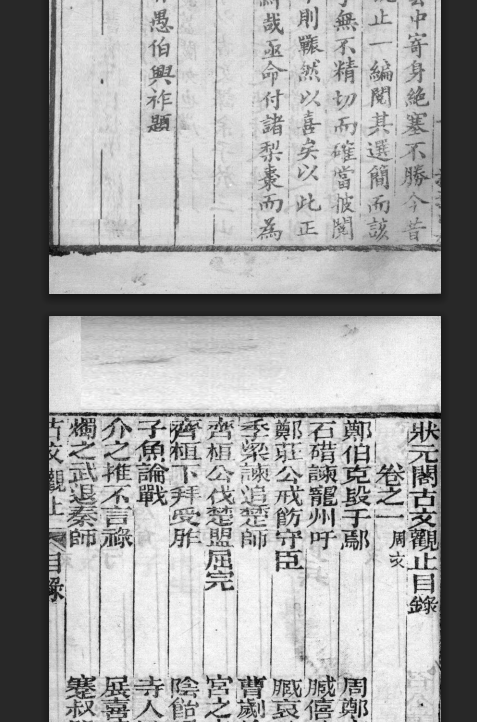 雲中寄身絶塞不勝今昔
止一編閲其選簡而該
無不精切而確當披閲
則囅然以喜矣以此正
哉亟命付諸梨棗而為
愚伯興祚題
狀元閣古文觀止目錄
卷之一
周文
鄭伯克段于鄢
石碏諫寵州吁
鄭莊公戒飭守臣
季梁諫追楚師
齊桓公伐楚盟屈完
齊桓下拜受胙
子魚論戰
介之推不言祿
燭之武退秦師
古文觀止
目錄
周鄭
臧僖
臧哀
曹劌
宮之
陰飴
寺人
展喜
蹇叔